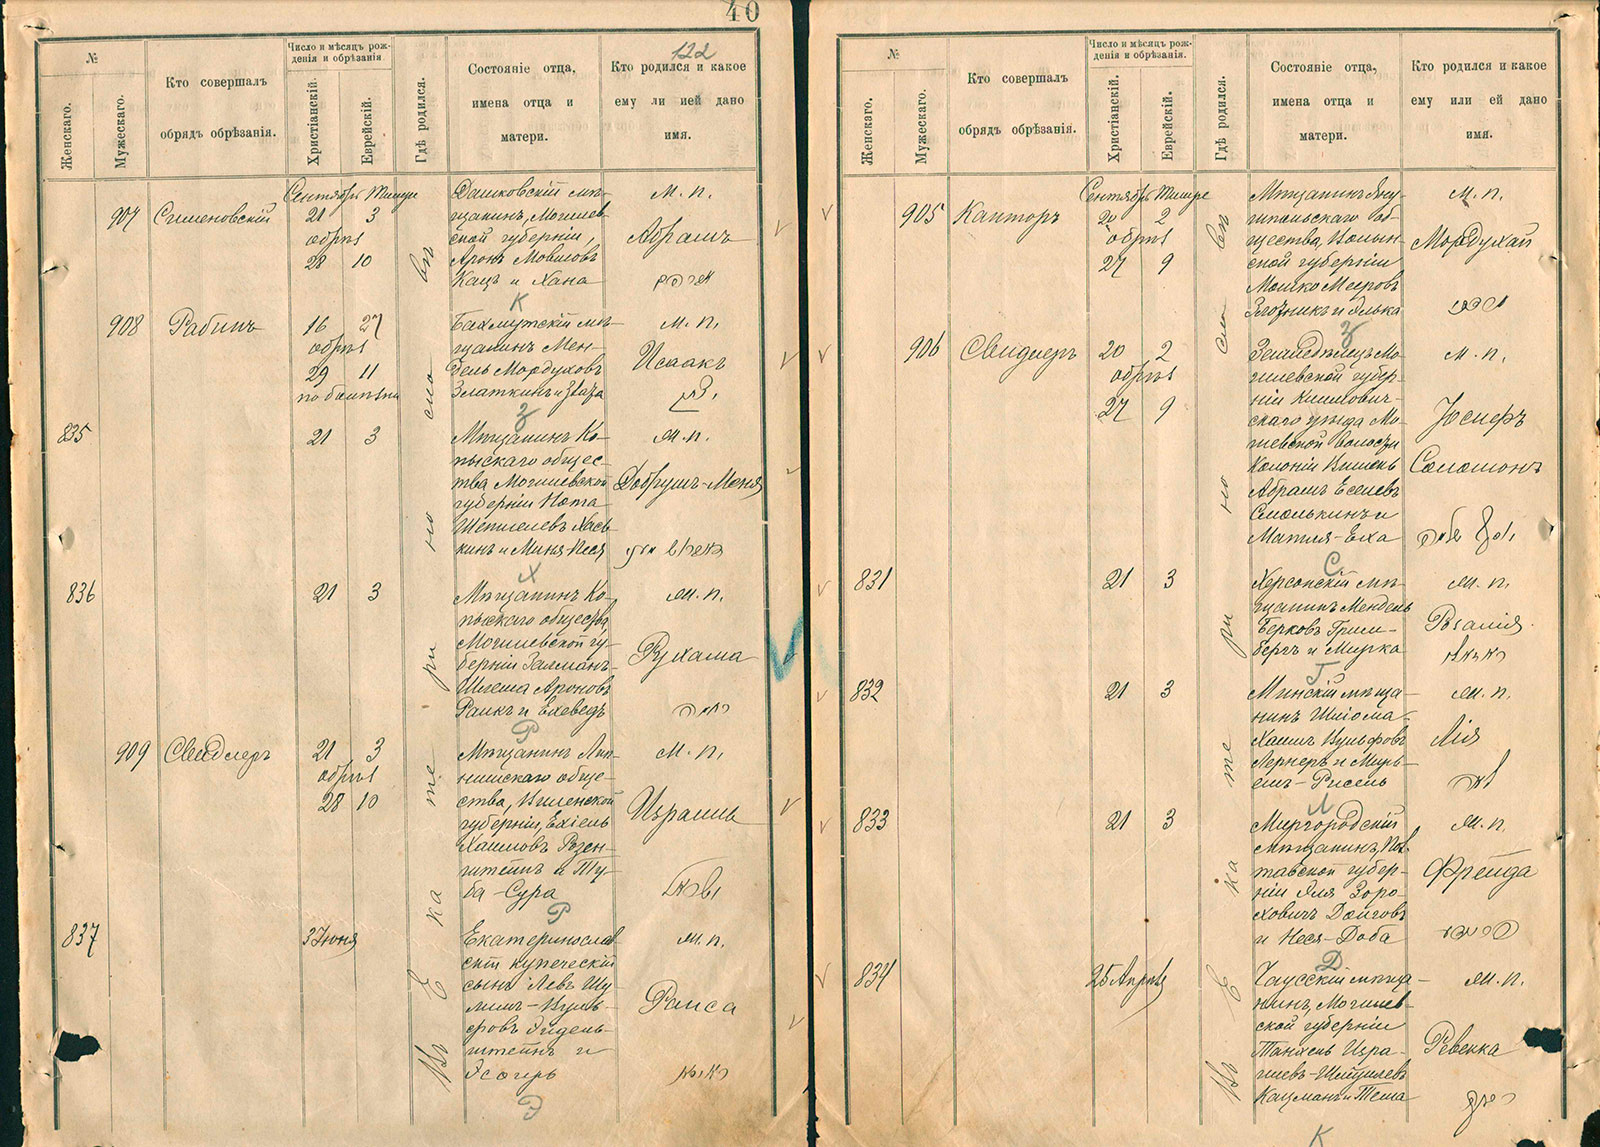 40
122
№
Женскаго.
Мужескаго.
Кто совершалъ
обрядъ обрѣзанія.
Число и мѣсяцъ рож-
денія и обрѣзанія
Христіанскій.
Еврейскій.
Гдѣ родился.
Состояніе отца,
имена отца и
матери.
Кто родился и какое
ему или ей дано
имя.
Въ Екатеринославѣ
907 Сименовскій
Сентябрь Тишри
21 3
обрѣз
28 10
Дашковскій мѣ-
щанинъ, Могилев-
ской губерніи,
Аронъ Мовшовъ
Кацъ и Хана
м. п.
Абрамъ
אברהם
К
908 Рабинъ
16 27
обрѣз
29 11
по болѣзни
Бахмутскій мѣ-
щанинъ Мен-
дель Мордуховъ
Златкинъ и Злата
м. п.
Исаакъ
З
835
21 3
Мѣщанинъ Ко-
пыскаго общес-
тва Могилевской
губерніи Нота
Шепшелевъ Хась-
кинъ и Миня-Песя
м. п.
Добрушъ-Меня
Х
836
21 3
Мѣщанинъ Ко-
пыскаго общества,
Могилевской гу-
берніи Залманъ-
Шлема Ароновъ
Раикъ и Ехеведъ
м. п.
Рухама
Р
909 Свидлеръ
21 3
обрѣз
28 10
Мѣщанинъ Лип-
нишскаго обще-
ства, Виленской
губерніи, Ехіель
Хаимовъ Розен-
штейнъ и Ту-
ба-Сура
м. п.
Израиль
Р
837
3 Іюня
Екатеринослав
скій купеческій
сынъ Левъ Шу-
лимъ-Вуль-
фовъ Эйдель-
штейнъ и
Эсѳирь
м. п.
Раиса
Э
№
Женскаго.
Мужескаго.
Кто совершалъ
обрядъ обрѣзанія.
Число и мѣсяцъ рож-
денія и обрѣзанія.
Христіанскій.
Еврейскій.
Гдѣ родился.
Состояніе отца,
имена отца и
матери.
Кто родился и какое
ему или ей дано
имя.
Въ Екатеринославѣ
905 Канторъ
Сентябрь Тишре
20 2
обрѣз
27 9
Мѣщанинъ Яку-
шпольскаго об-
щества, Волын-
ской губерніи
Мошко Мееровъ
Злозникъ и Элька
м. п.
Мордухай
З
906 Свидлеръ
20 2
обрѣз
27 9
Землядѣлецъ Мо-
гилевской губер-
ніи Климович-
скаго уѣзда Мо-
левской волости
Колоніи Вишень
Абрамъ Еселевъ
Смолькинъ и
Матля-Еха
м. п.
Іосифъ
Соломонъ
С
831
21 3
Херсонскій мѣ-
щанинъ Мендель
Берковъ Грин-
бергъ и Мирка
м. п.
Розалія
Г
832
21 3
Минскій мѣща-
нинъ Шліома-
Хаимъ Вульфовъ
Лернеръ и Мирь-
емъ-Рисель
м. п.
Лія
Л
833
21 3
Миргородскій
мѣщанинъ, Пол-
тавской губер-
ніи Эля Зоро-
ховичъ Долговъ
и Неся-Доба
м. п.
Фрейда
Д
834
25 Апрѣля
Чаусскій мѣща-
нинъ, Могилев-
ской губерніи
Танхель Изра-
илевъ-Шмуилевъ
Кацманъ и Теша
м. п.
Ревекка
К